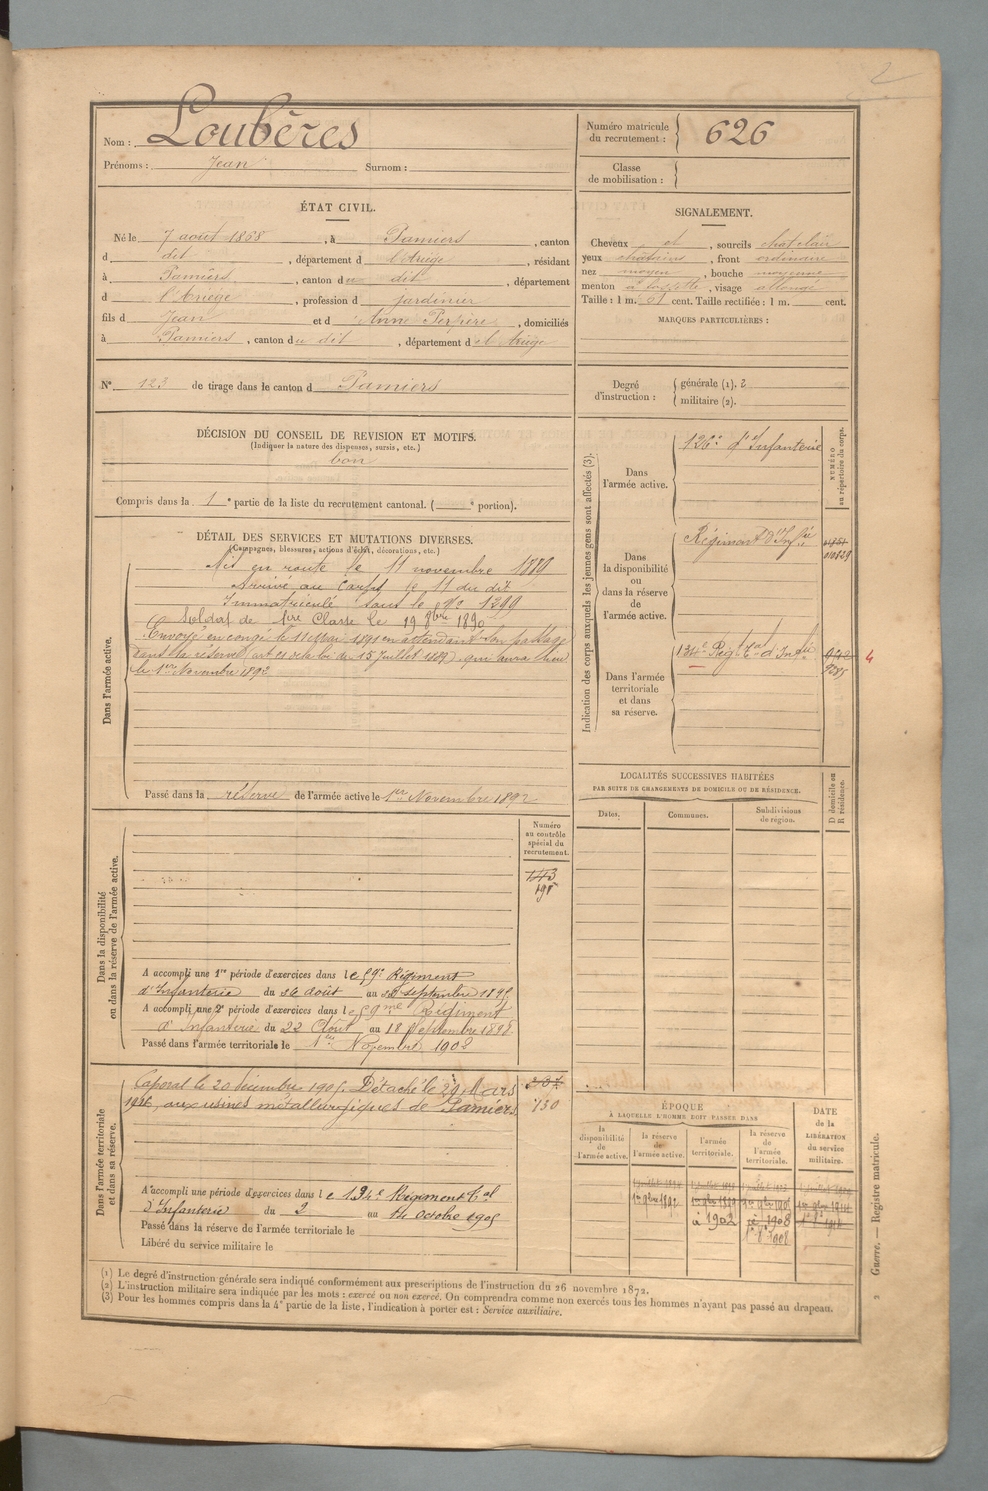 2
Nom : Loubères
Prénoms : Jean Surnom :
Numéro matricule du recrutement : 626
Classe de mobilisation :
ÉTAT CIVIL.
Né le 7 août 1868, à Pamiers, canton
d dit, département d l'Ariège, résidant
à Pamiers, canton du dit, département
d l'Ariège, profession d jardinier
fils d Jean et d Anne, domiciliés
à Pamiers, canton du dit, département d el Ariège
SIGNALEMENT.
Cheveux et, sourcils chatclair
yeux chatains, front ordinaire
nez moyen, bouche moyenne
menton à fossette, visage allongé
Taille : 1 m. 61 cent. Taille rectifiée : 1 m. cent.
MARQUES PARTICULIÈRES :
N° 123 de tirage dans le canton d Pamiers
Degré d'instruction : générale (1). 2
militaire (2).
DÉCISION DU CONSEIL DE REVISION ET MOTIFS.
(Indiquer la nature des dispenses, sursis, etc.)
bon
Compris dans la 1e partie de la liste du recrutement cantonal. ( e portion).
DÉTAIL DES SERVICES ET MUTATIONS DIVERSES.
(Campagnes, blessures, actions d'éclat, décorations, etc.)
Dans l'armée active.
Mis en route le 11 novembre 1889
Arrivé au Corps le 11 du dit
Immatriculé sous le n° 1299
Soldat de 1re Classe le 19 8bre 1890
Envoyé en congé le 11 1891 en attendant son passage
dans la réserve (art de la loi du 15 juillet 1889) qui aura lieu
le 1er Novembre 1892
Passé dans la réserve de l'armée active le 1er Novembre 1892
Indication des corps auxquels les jeunes gens sont affectés (3).
NUMÉRO au répertoire du corps.
Dans l'armée active.
126e d'Infanterie
Dans la disponibilité ou dans la réserve de l'armée active.
Régiment d'Infie
010829
Dans l'armée territoriale et dans sa réserve.
134e Régt Tal d'Infie
942
9285
4
LOCALITÉS SUCCESSIVES HABITÉES
PAR SUITE DE CHANGEMENTS DE DOMICILE OU DE RÉSIDENCE.
Dates. Communes. Subdivisions de région.
D domicile ou R résidence.
Dans la disponibilité ou dans la réserve de l'armée active.
Numéro au contrôle spécial du recrutement.
143
195
A accompli une 1re période d'exercices dans le 59e Régiment
d'Infanterie du 26 août au septembre 1895
A accompli une 2e période d'exercices dans le 59me Régiment
d'Infanterie du 22 Août au 18 Septembre 1898
Passé dans l'armée territoriale le 1er Novembre 1902
Dans l'armée territoriale et dans sa réserve.
Caporal le 20 décembre 1905. Détaché le 29 Mars
1916 aux usines métallurgiques de Pamiers
130
A accompli une période d'exercices dans le 134e Régiment Tal
d'Infanterie du 2 au 14 octobre 1905
Passé dans la réserve de l'armée territoriale le
Libéré du service militaire le
ÉPOQUE
À LAQUELLE L'HOMME DOIT PASSER DANS
la disponibilité de l'armée active.
la réserve de l'armée active.
l'armée territoriale.
la réserve de l'armée territoriale.
DATE de la LIBÉRATION du service militaire.
1er 9bre 1892
à 1902
1908
1908
(1) Le degré d'instruction générale sera indiqué conformément aux prescriptions de l'instruction du 26 novembre 1872.
(2) L'instruction militaire sera indiquée par les mots : exercé ou non exercé. On comprendra comme non exercés tous les hommes n'ayant pas passé au drapeau.
(3) Pour les hommes compris dans la 4e partie de la liste, l'indication à porter est : Service auxiliaire.
2 Guerre. — Registre matricule.